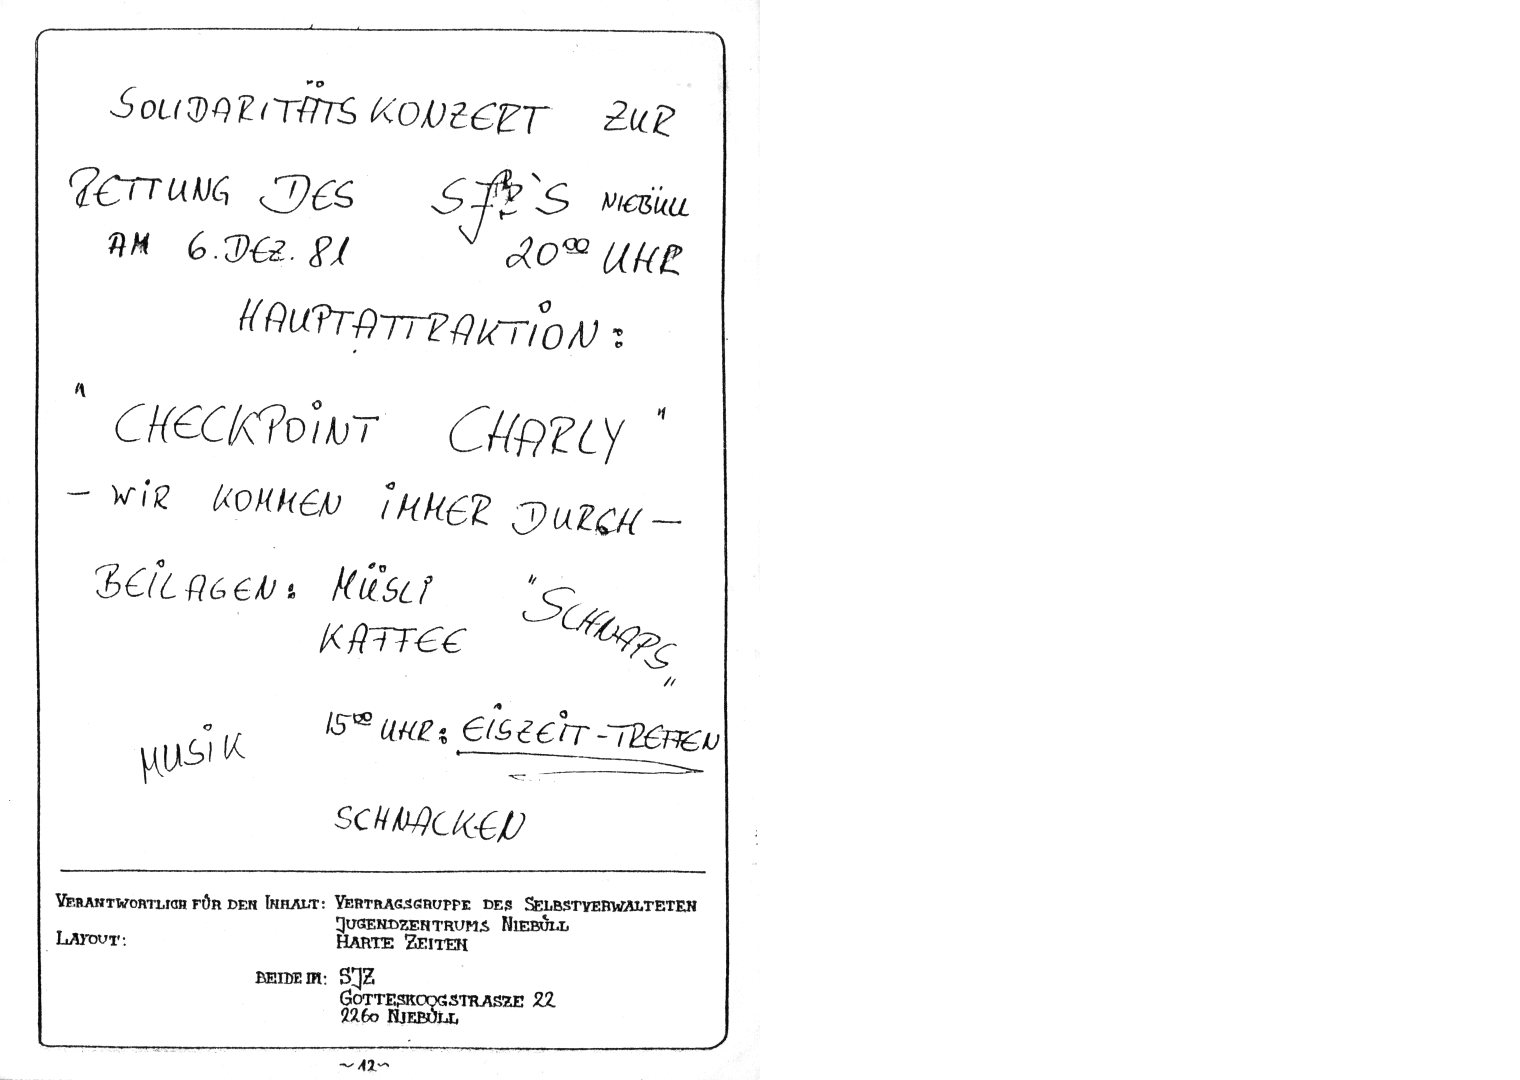 SOLIDARITÄTSKONZERT ZUR
RETTUNG DES SJZ`S NIEBÜLL
AM 6. DEZ. 81 20⁰⁰ UHR
HAUPTATTRAKTION:
"CHECKPOINT CHARLY"
- WIR KOMMEN IMMER DURCH -
BEILAGEN: MÜSLI "SCHNAPS"
KAFFEE
15⁰⁰ UHR: EISZEIT-TREFFEN
MUSIK
SCHNACKEN
VERANTWORTLICH FÜR DEN INHALT: VERTRAGSGRUPPE DES SELBSTVERWALTETEN
JUGENDZENTRUMS NIEBÜLL
LAYOUT: HARTE ZEITEN
BEIDE IM: SJZ
GOTTESKOOGSTRASZE 22
2260 NIEBÜLL
~12~